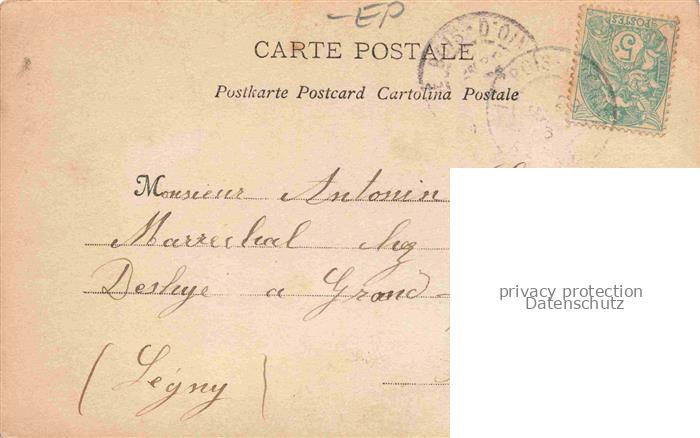 EP
CARTE POSTALE
Postkarte Postcard Cartolina Postale
BOIS-D'OIN
POSTES
5
Monsieur Antonin
Marrechal chez
Deshye a Grand-
(Légny)
privacy protection
Datenschutz